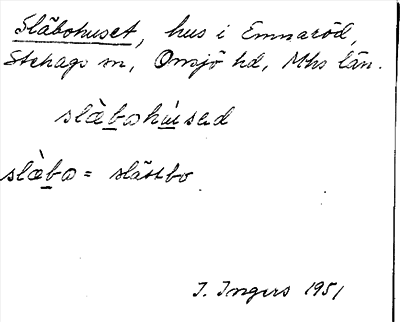 Släbohuset, hus i Emmaröd,
Stehags sn, Onsjö hd, Mhs län.
slæ̀bɷhúsəd
slæ̀bɷ = slättbo
I. Ingers 1951